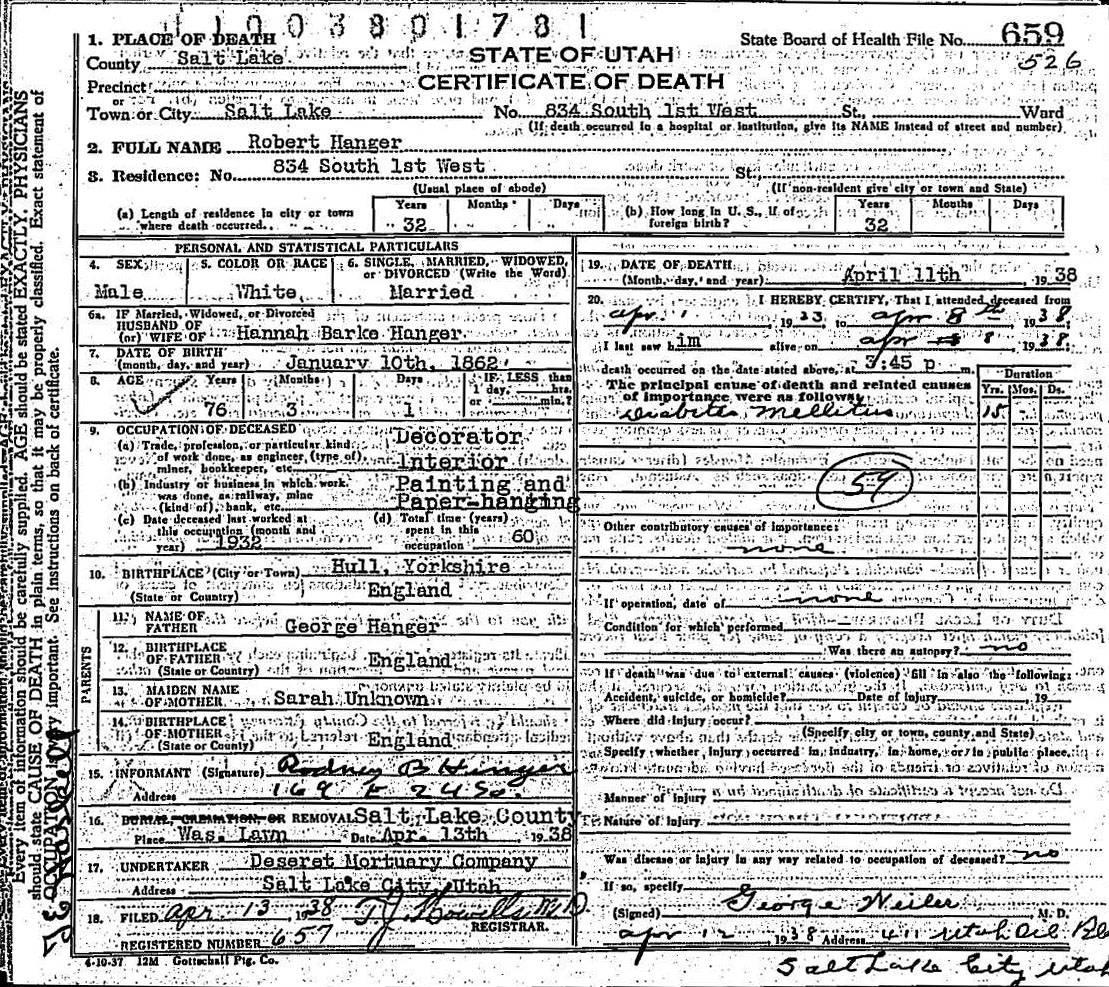 1003801781
1. PLACE OF DEATH
State Board of Health File No. 659
526
County Salt Lake
STATE OF UTAH
CERTIFICATE OF DEATH
Precinct
or
Town or City Salt Lake No. 834 South 1st West St., Ward
(If death occurred in a hospital or institution, give its NAME instead of street and number)
2. FULL NAME Robert Hanger
3. Residence: No. 834 South 1st West St.
(Usual place of abode) (If non-resident give city or town and State)
(a) Length of residence in city or town where death occurred. Years 32 Months Days
(b) How long in U. S., if of foreign birth? Years 32 Months Days
PERSONAL AND STATISTICAL PARTICULARS
4. SEX Male
5. COLOR OR RACE White
6. SINGLE, MARRIED, WIDOWED, or DIVORCED (Write the Word) Married
6a. IF Married, Widowed, or Divorced
HUSBAND OF
(or) WIFE OF Hannah Barke Hanger
7. DATE OF BIRTH
(month, day, and year) January 10th, 1862
8. AGE Years 76 Months 3 Days 1 IF LESS than 1 day, hrs. or min.?
9. OCCUPATION OF DECEASED
(a) Trade, profession, or particular kind of work done, as engineer, (type of), miner, bookkeeper, etc. Decorator Interior
(b) Industry or business in which work was done, as railway, mine (kind of), bank, etc. Painting and Paper-hanging
(c) Date deceased last worked at this occupation (month and year) 1932
(d) Total time (years) spent in this occupation 60
10. BIRTHPLACE (City or Town) Hull, Yorkshire
(State or Country) England
PARENTS
11. NAME OF FATHER George Hanger
12. BIRTHPLACE OF FATHER
(State or Country) England
13. MAIDEN NAME OF MOTHER Sarah Unknown
14. BIRTHPLACE OF MOTHER
(State or Country) England
15. INFORMANT (Signature) Rodney B Hanger
Address 169 E 24 So.
16. BURIAL, CREMATION OR REMOVAL Salt Lake County
Place Was. Lawn Date Apr. 13th 1938
17. UNDERTAKER Deseret Mortuary Company
Address Salt Lake City, Utah
18. FILED Apr 13 1938 T. J. Howells M.D.
REGISTRAR.
REGISTERED NUMBER 657
4-10-37 12M Gottschall Ptg. Co.
19. DATE OF DEATH
(Month, day, and year) April 11th 1938
20. I HEREBY CERTIFY, That I attended deceased from
Apr. 1, 1923 to Apr 8th 1938
I last saw him alive on Apr 8 1938
death occurred on the date stated above, at 3:45 p m.
The principal cause of death and related causes of importance were as follows:
Duration
Yrs. Mos. Ds.
Diabetes Mellitus 15
59
Other contributory causes of importance:
none
If operation, date of none
Condition for which performed
Was there an autopsy? no
If death was due to external causes (violence) fill in also the following:
Accident, suicide, or homicide? Date of injury 19
Where did injury occur?
(Specify city or town, county and State)
Specify whether injury occurred in industry, in home, or in public place.
Manner of injury
Nature of injury
Was disease or injury in any way related to occupation of deceased? no
If so, specify
(Signed) George Weiler M. D.
Apr 12 1938 Address 411 Utah Oil
Salt Lake City Utah
Every item of information should be carefully supplied. AGE should be stated EXACTLY. PHYSICIANS
should state CAUSE OF DEATH in plain terms, so that it may be properly classified. Exact statement of
OCCUPATION is very important. See instructions on back of certificate.